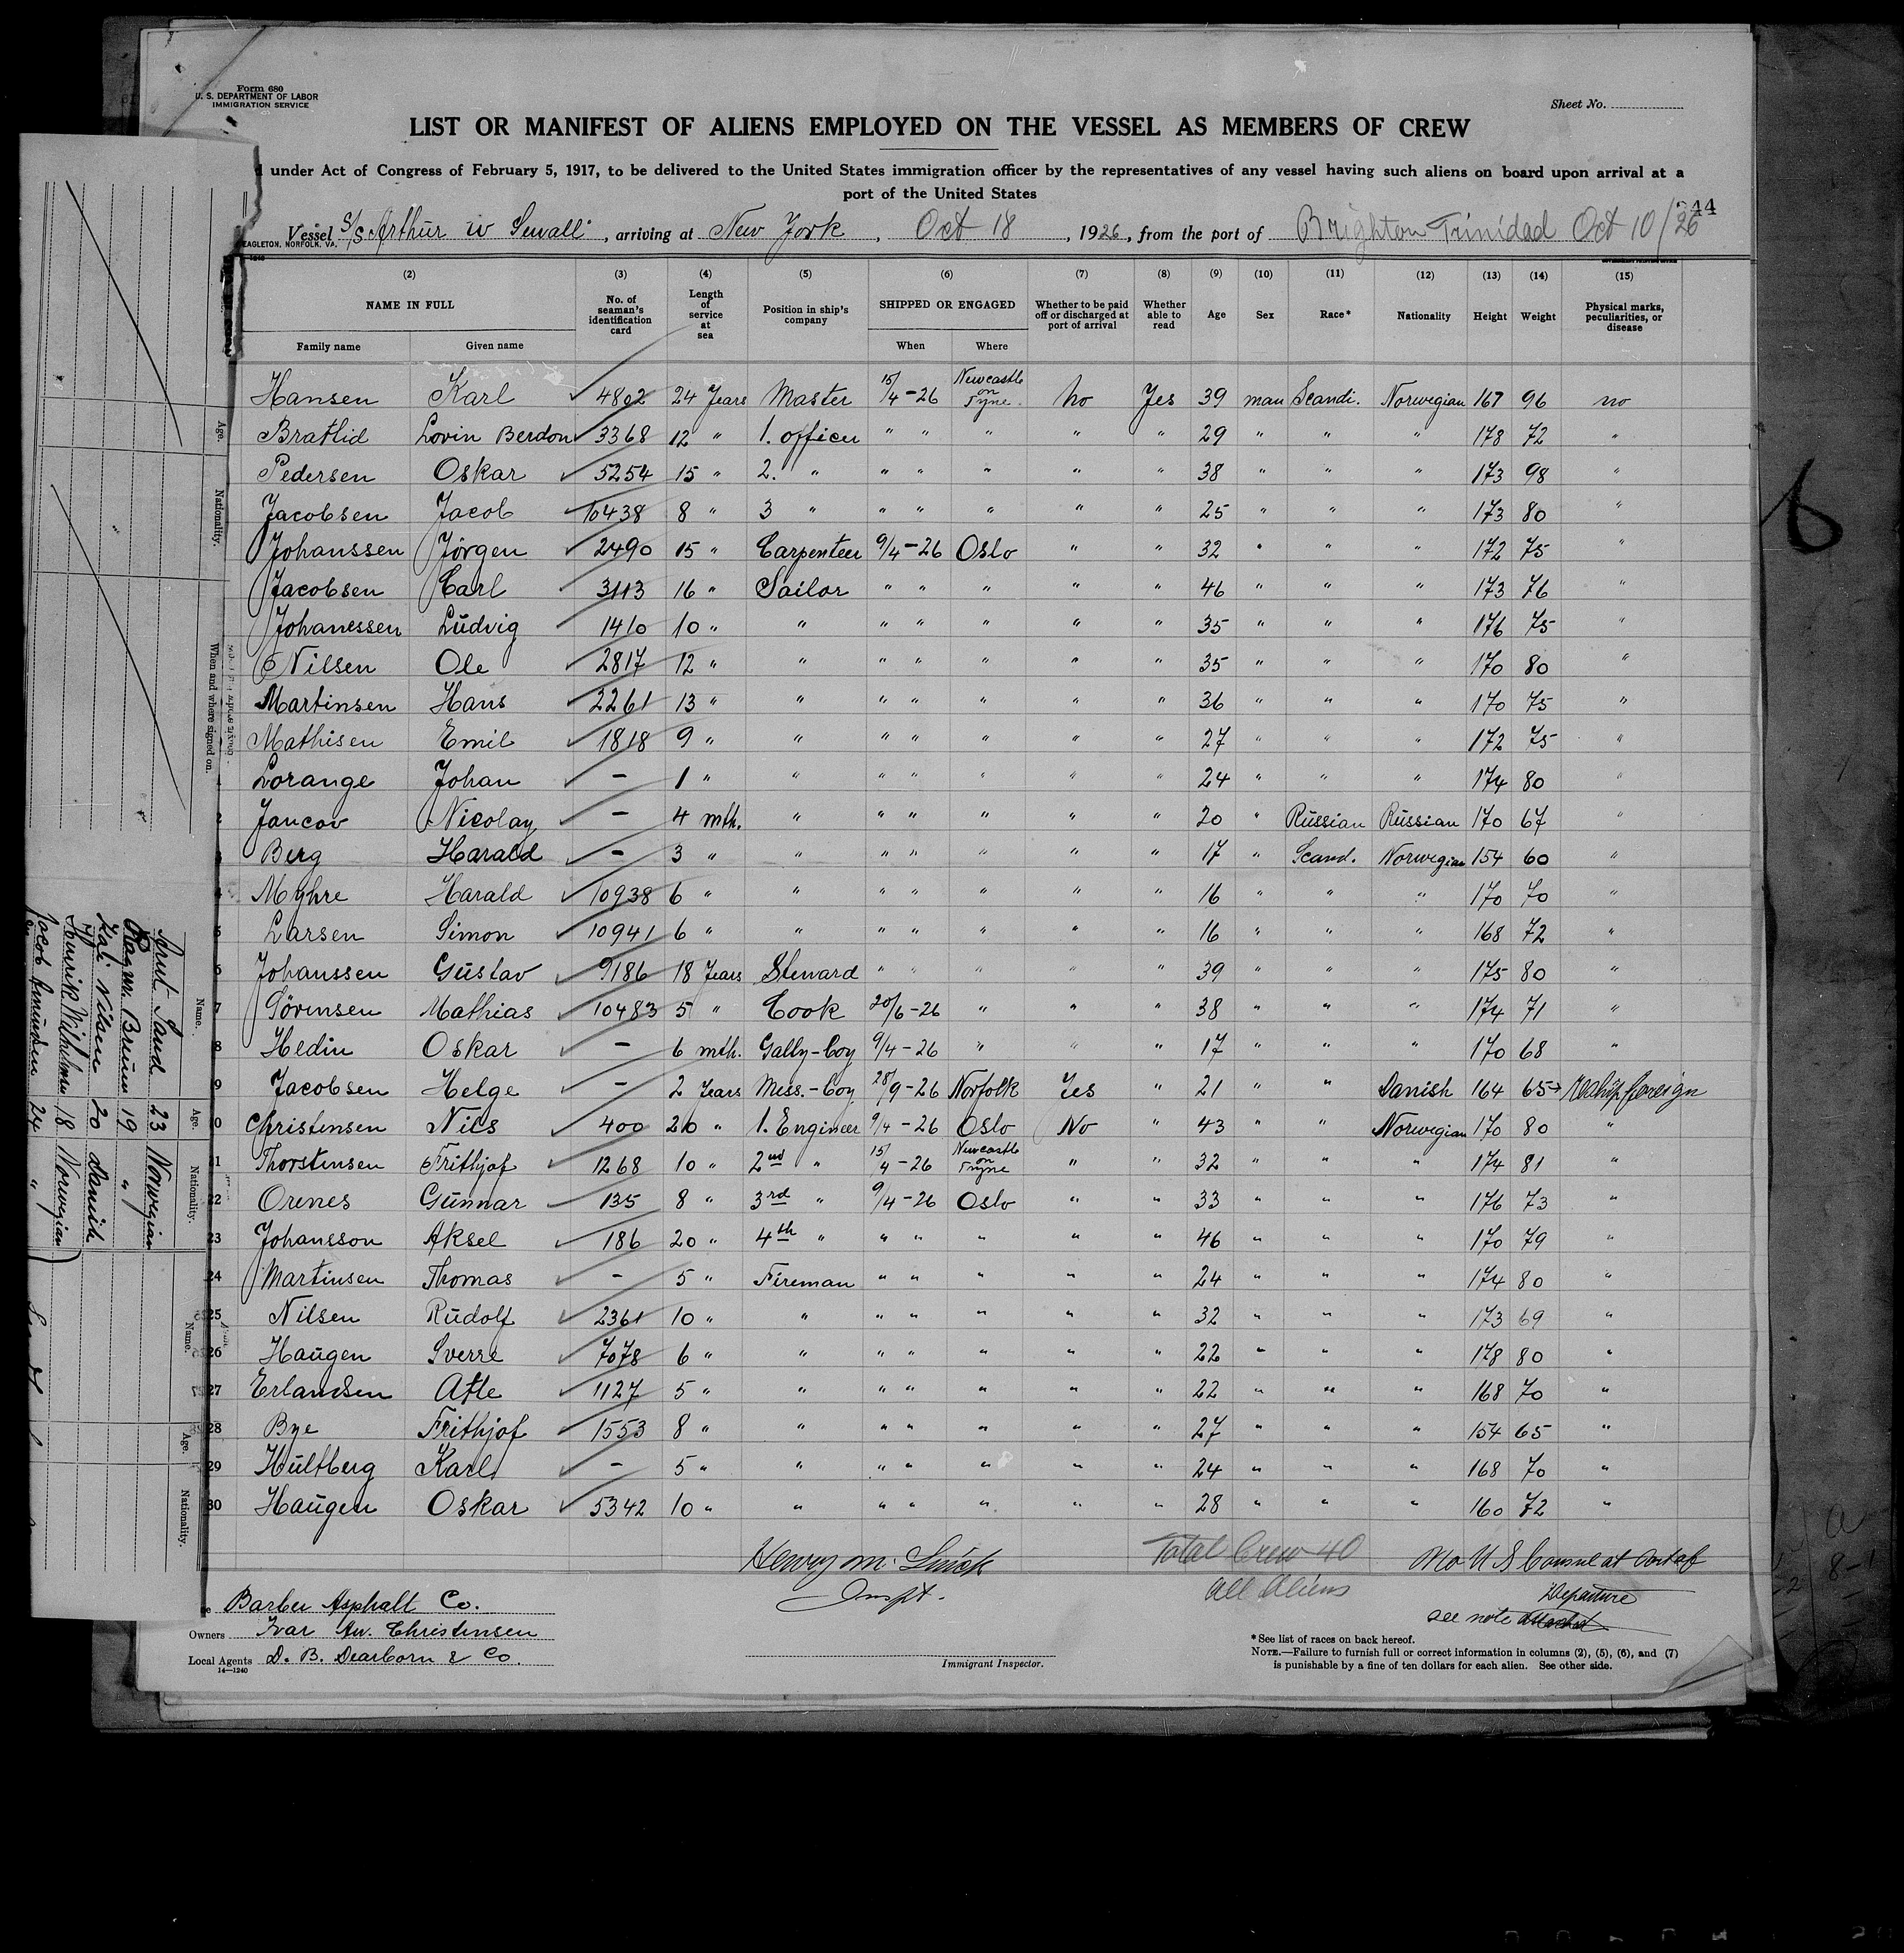 Form 680
U. S. DEPARTMENT OF LABOR
IMMIGRATION SERVICE
Sheet No.
LIST OR MANIFEST OF ALIENS EMPLOYED ON THE VESSEL AS MEMBERS OF CREW
under Act of Congress of February 5, 1917, to be delivered to the United States immigration officer by the representatives of any vessel having such aliens on board upon arrival at a
port of the United States
44
Vessel S/S Arthur W Sewall, arriving at New York, Oct 18, 1926, from the port of Brighton Trinidad Oct 10/26
EAGLETON, NORFOLK, VA.
(2) (3) (4) (5) (6) (7) (8) (9) (10) (11) (12) (13) (14) (15)
NAME IN FULL No. of seaman's identification card Length of service at sea Position in ship's company SHIPPED OR ENGAGED Whether to be paid off or discharged at port of arrival Whether able to read Age Sex Race* Nationality Height Weight Physical marks, peculiarities, or disease
Family name Given name When Where
Hansen Karl 4802 24 Years Master 15/4-26 Newcastle on Tyne No Yes 39 man Scandi. Norwegian 167 96 no
Bratlid Lovin Berdon 3368 12 " 1. officer " " " " " 29 " " " 178 72 "
Pedersen Oskar 5254 15 " 2. " " " " " " 38 " " " 173 98 "
Jacobsen Jacob 10438 8 " 3 " " " " " " 25 " " " 173 80 "
Johanssen Jörgen 2490 15 " Carpenteer 9/4-26 Oslo " " 32 " " " 172 75 "
Jacobsen Carl 3113 16 " Sailor " " " " " 46 " " " 173 76 "
Johanessen Ludvig 1410 10 " " " " " " " 35 " " " 176 75 "
Nilsen Ole 2817 12 " " " " " " " 35 " " " 170 80 "
Martinsen Hans 2261 13 " " " " " " " 36 " " " 170 75 "
Mathisen Emil 1818 9 " " " " " " " 27 " " " 172 75 "
Lorange Johan - 1 " " " " " " " 24 " " " 174 80 "
Jancov Nicolay - 4 mth. " " " " " " 20 " Russian Russian 170 67 "
Berg Harald - 3 " " " " " " " 17 " Scand. Norwegian 154 60 "
Myhre Harald 10938 6 " " " " " " " 16 " " " 170 70 "
Larsen Simon 10941 6 " " " " " " " 16 " " " 168 72 "
Johanssen Gustav 9186 18 Years Steward " " " " " 39 " " " 175 80 "
Sörensen Mathias 10483 5 " Cook 20/6-26 " " " 38 " " " 174 71 "
Hedin Oskar - 6 mth. Gally-boy 9/4-26 " " " 17 " " " 170 68 "
Jacobsen Helge - 2 Years Mess.-boy 28/9-26 Norfolk Yes " 21 " " Danish 164 65 Reship foreign
Christensen Nils 400 20 " 1. Engineer 9/4-26 Oslo No " 43 " " Norwegian 170 80 "
Thorstensen Frithjof 1268 10 " 2nd " 15/4-26 Newcastle on Tyne " " 32 " " " 174 81 "
22 Orenes Gunnar 135 8 " 3rd " 9/4-26 Oslo " " 33 " " " 176 73 "
23 Johansson Aksel 186 20 " 4th " " " " " " 46 " " " 170 79 "
24 Martinsen Thomas - 5 " Fireman " " " " " 24 " " " 174 80 "
25 Nilsen Rudolf 2361 10 " " " " " " " 32 " " 173 69 "
26 Haugen Sverre 7078 6 " " " " " " " 22 " " " 178 80 "
27 Erlandsen Atle 1127 5 " " " " " " " 22 " " " 168 70 "
28 Bye Frithjof 1553 8 " " " " " " " 27 " " " 154 65 "
29 Hultberg Karl - 5 " " " " " " " 24 " " " 168 70 "
30 Haugen Oskar 5342 10 " " " " " " " 28 " " " 160 72 "
Henry M.
Inspt.
Total Crew 40
all Aliens
No U S Consul at Port of
Departure
see note attached
Barber Asphalt Co.
Owners Ivar An. Christensen
Local Agents D. B. Dearborn & Co.
14—1240
Immigrant Inspector.
*See list of races on back hereof.
NOTE.—Failure to furnish full or correct information in columns (2), (5), (6), and (7)
is punishable by a fine of ten dollars for each alien. See other side.
Age.
Nationality.
When and where signed on.
Name. Age. Nationality.
Knut Sand 23 Norwegian
Ragnv. Bruun 19 "
Kali Nilsen 20 Danish
Henrik Wilhelmsen 18 Norwegian
Jacob Amundsen 24 "
Name. Age. Nationality.
8-1